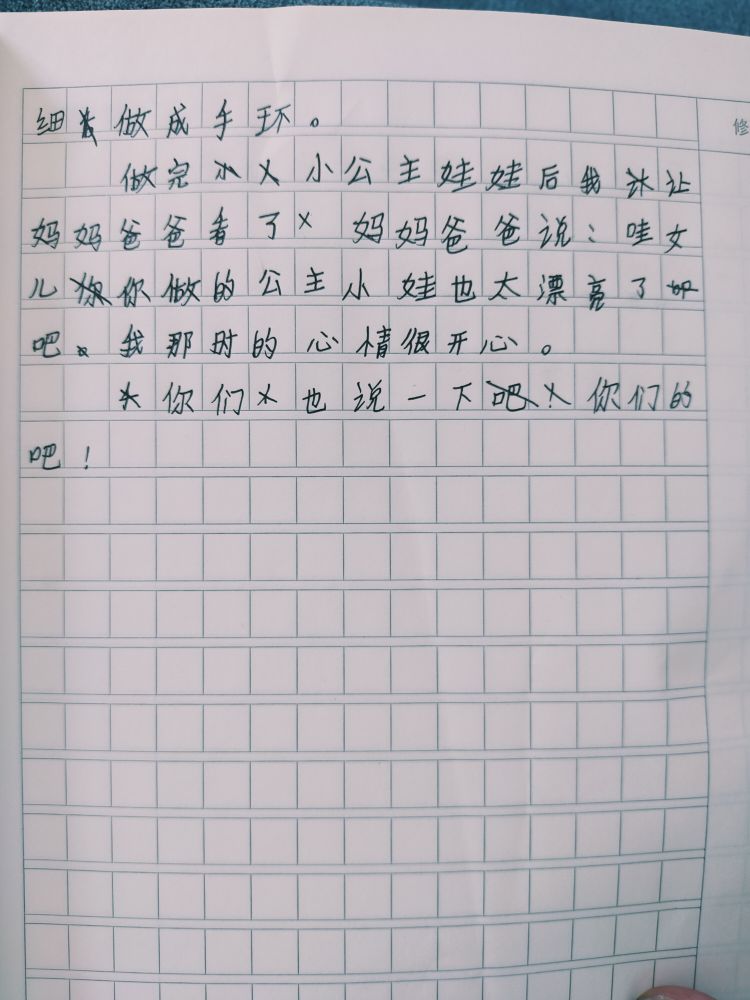 细做成手环。 修
做完小公主娃娃后我让
妈妈爸爸看了 妈妈爸爸说：哇女
儿你做的公主小娃也太漂亮了
吧。我那时的心情很开心。
你们也说一下你们的
吧！